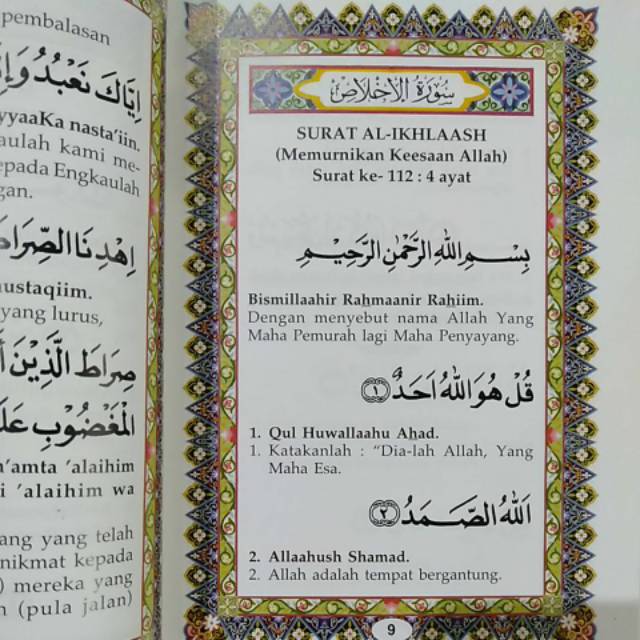 pembalasan
اِيَّاكَ نَعْبُدُ وَاِ
yyaaKa nasta'iin.
aulah kami me-
epada Engkaulah
gan.
اِهْدِنَا الصِّرَاطَ
ustaqiim.
yang lurus,
صِرَاطَ الَّذِيْنَ اَ
الْمَغْضُوْبِ عَلَ
n'amta 'alaihim
i 'alaihim wa
ang yang telah
nikmat kepada
) mereka yang
n (pula jalan)
سُوْرَةُ الْاِخْلَاصِ
SURAT AL-IKHLAASH
(Memurnikan Keesaan Allah)
Surat ke- 112 : 4 ayat
بِسْمِ اللهِ الرَّحْمٰنِ الرَّحِيْمِ
Bismillaahir Rahmaanir Rahiim.
Dengan menyebut nama Allah Yang
Maha Pemurah lagi Maha Penyayang.
قُلْ هُوَ اللهُ اَحَدٌ ۝١
1. Qul Huwallaahu Ahad.
1. Katakanlah : "Dia-lah Allah, Yang
Maha Esa.
اَللهُ الصَّمَدُ ۝٢
2. Allaahush Shamad.
2. Allah adalah tempat bergantung.
9